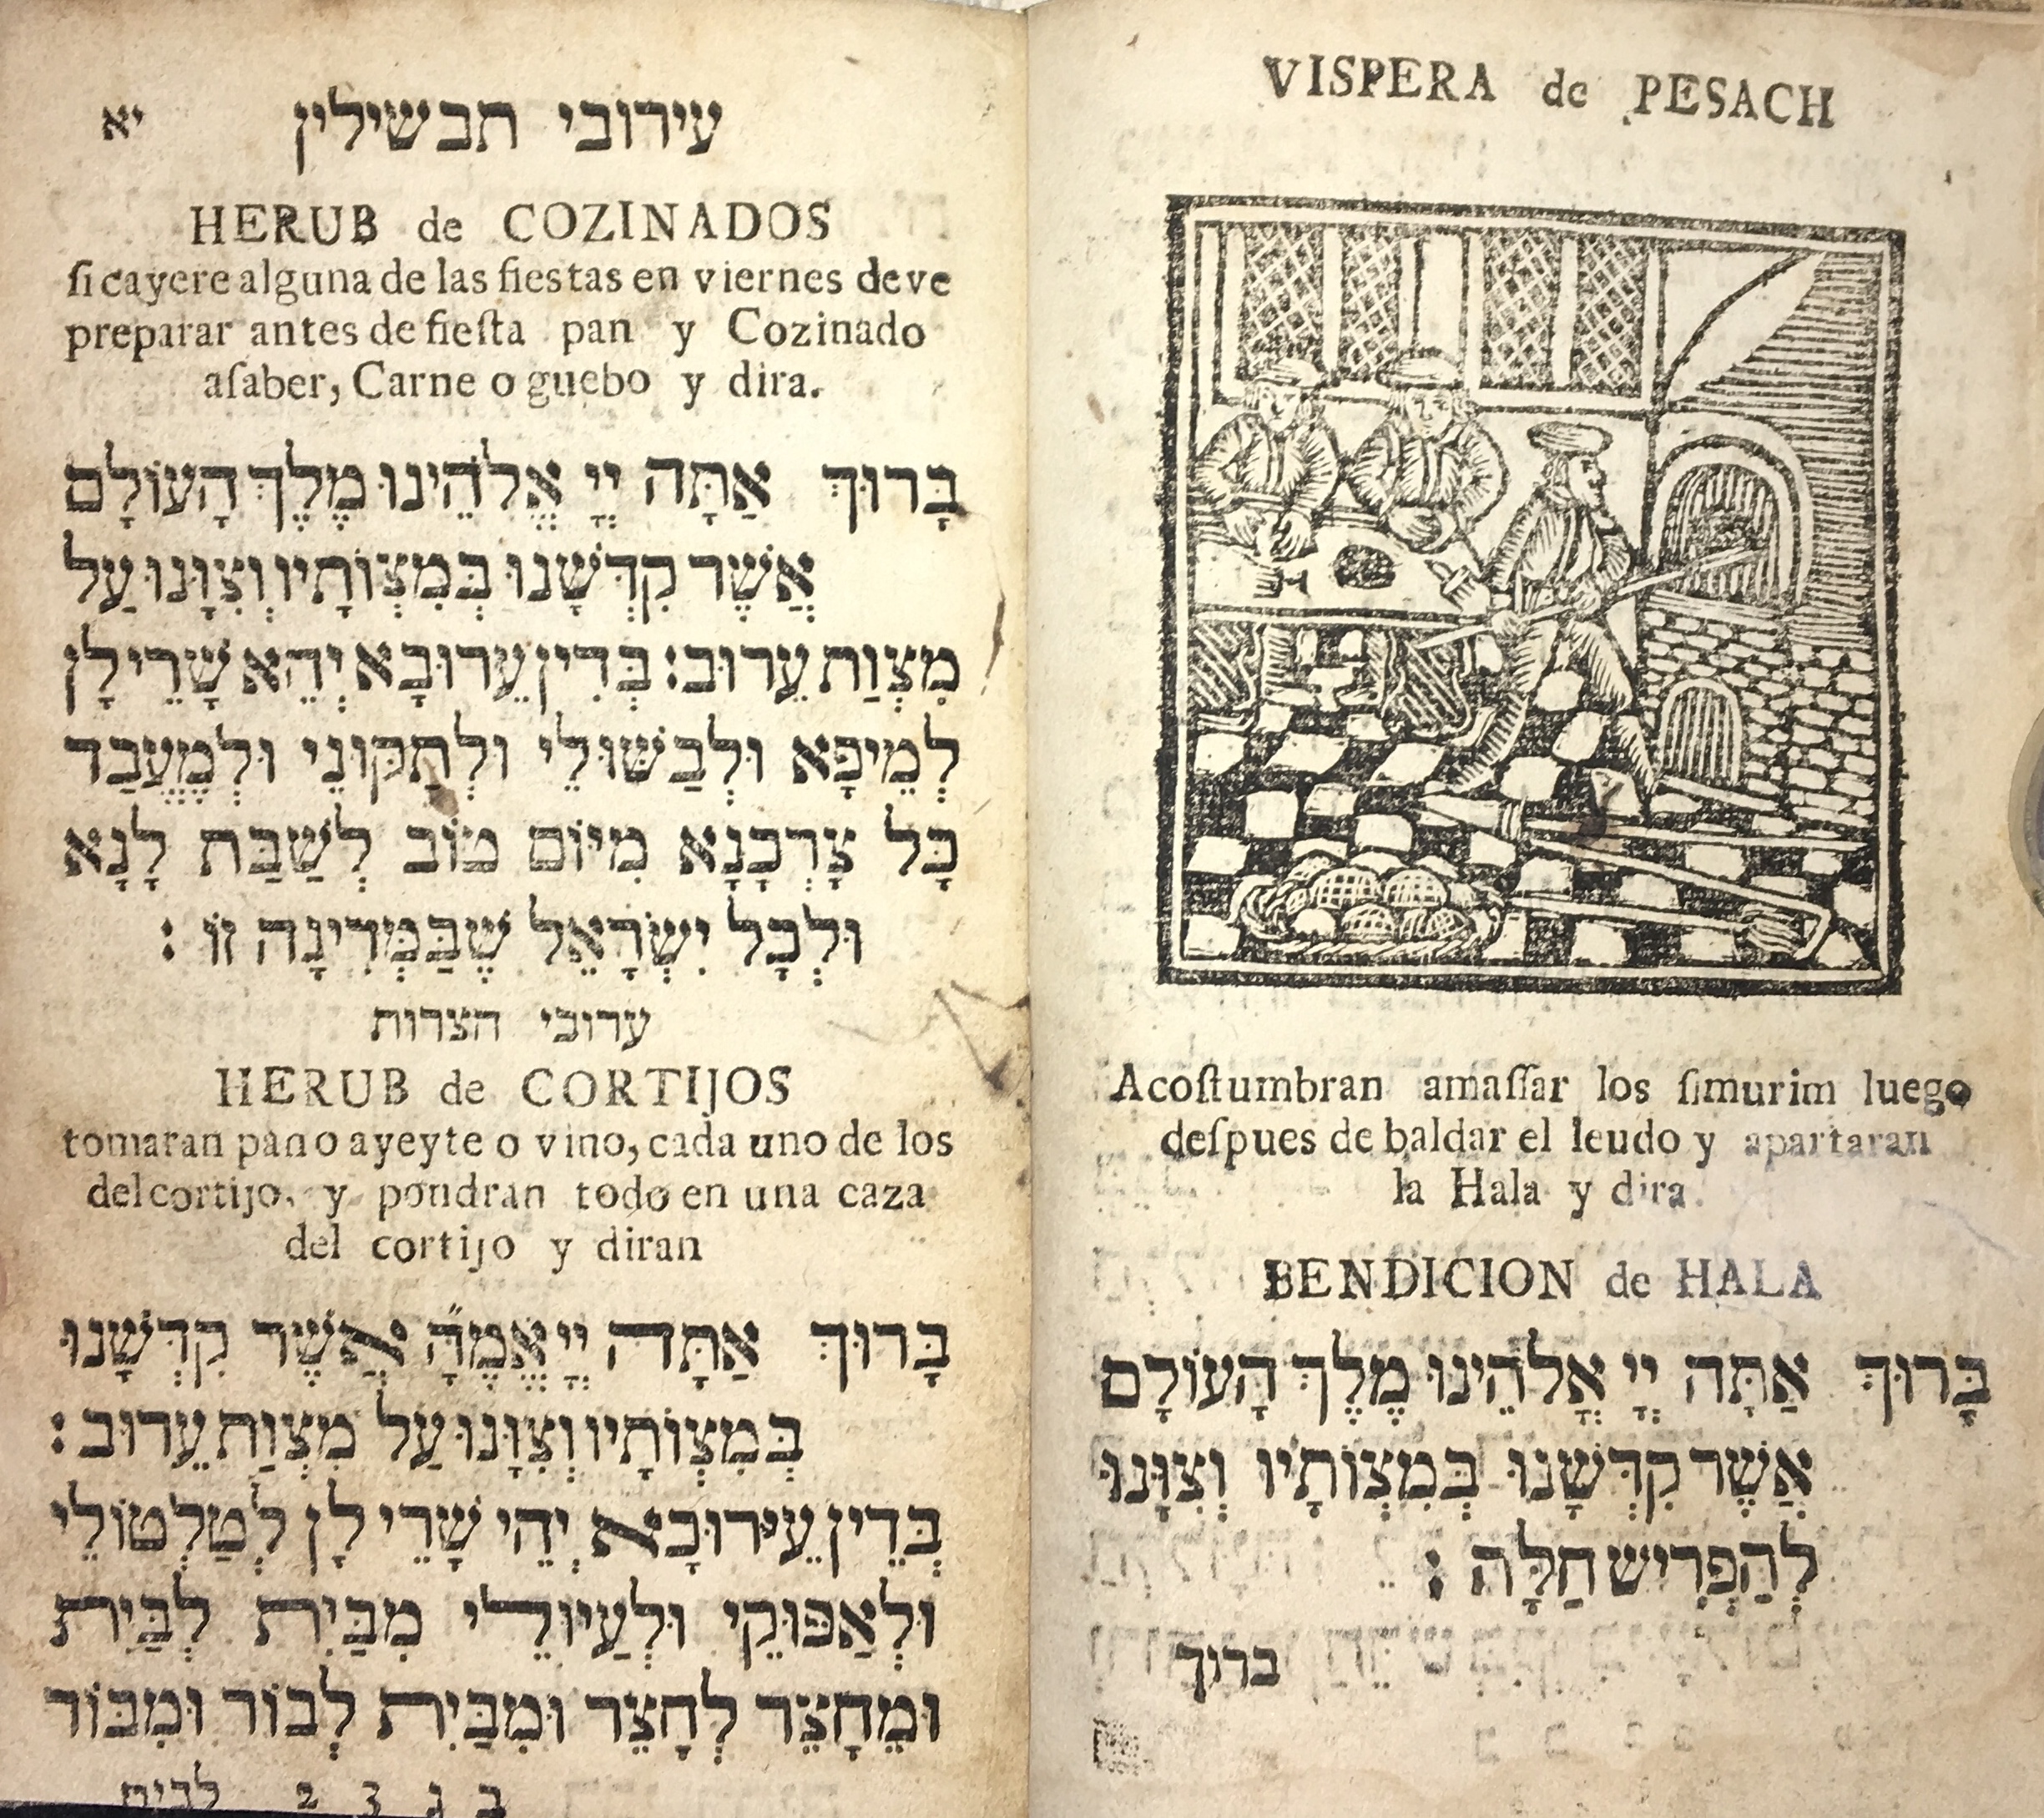 VISPERA de PESACH
Acoſtumbran amaſſar los ſimurim luego
deſpues de baldar el leudo y apartaran
la Hala y dira.
BENDICION de HALA
בָּרוּךְ אַתָּה יְיָ אֱלֹהֵינוּ מֶלֶךְ הָעוֹלָם
אֲשֶׁר קִדְּשָׁנוּ בְּמִצְוֹתָיו וְצִוָּנוּ
לְהַפְרִישׁ חַלָּה :
ברוך
עירובי תבשילין יא
HERUB de COZINADOS
ſi cayere alguna de las fiestas en viernes deve
preparar antes de fieſta pan y Cozinado
aſaber, Carne o guebo y dira.
בָּרוּךְ אַתָּה יְיָ אֱלֹהֵינוּ מֶלֶךְ הָעוֹלָם
אֲשֶׁר קִדְּשָׁנוּ בְּמִצְוֹתָיו וְצִוָּנוּ עַל
מִצְוַת עֵרוּב: בְּדִין עֵרוּבָא יְהֵא שָׁרֵי לָן
לְמֵיפָא וּלְבַשּׁוּלֵי וּלְתַקּוּנֵי וּלְמֶעֱבַד
כָּל צָרְכָנָא מִיּוֹם טוֹב לְשַׁבַּת לָנָא
וּלְכָל יִשְׂרָאֵל שֶׁבַּמְּדִינָה זוֹ :
ערובי חצרות
HERUB de CORTIJOS
tomaran pan o ayeyte o vino, cada uno de los
del cortijo, y pondran todo en una caza
del cortijo y diran
בָּרוּךְ אַתָּה יְיָ אֱמֶ״הָ אֲשֶׁר קִדְּשָׁנוּ
בְּמִצְוֹתָיו וְצִוָּנוּ עַל מִצְוַת עֵרוּב :
בְּדֵין עֵירוּבָא יְהֵי שָׁרֵי לָן לְטַלְטוֹלֵי
וּלְאַפּוּקֵי וּלְעַיוּלֵי מִבַּיִת לְבַּיִת
וּמֵחָצֵר לְחָצֵר וּמִבַּיִת לְבוֹר וּמִבּוֹר
ב ג 3 2 לבית